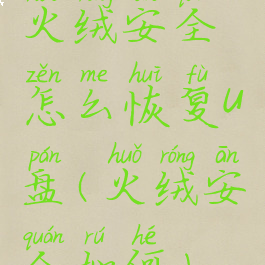 火绒安全
zěn me huī fù
怎么恢复U
pán huǒ róng ān
盘(火绒安
quán rú hé
全如何)